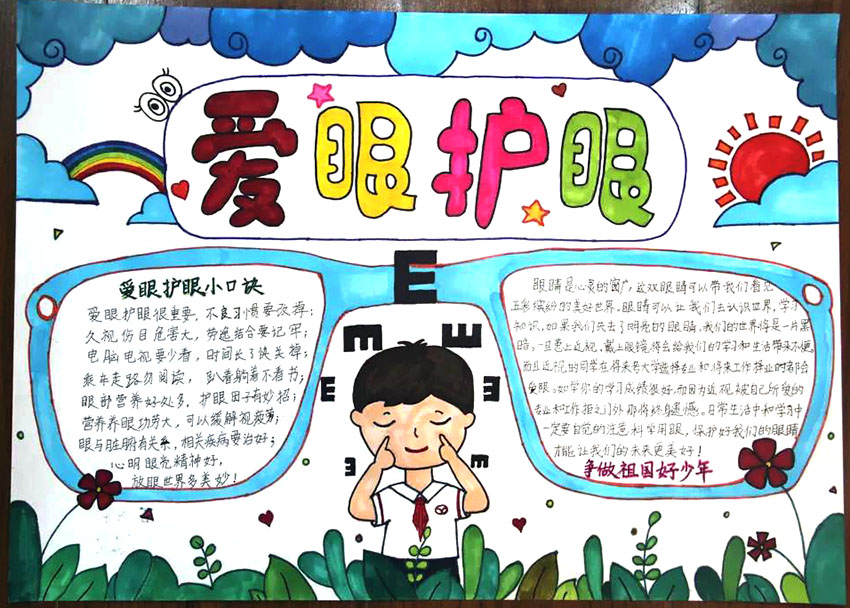 爱眼护眼
E
E
E
E
E
E
E
爱眼护眼小口诀
爱眼护眼很重要，不良习惯要改掉；
久视伤目危害大，劳逸结合要记牢；
电脑电视要少看，时间长了快关掉；
乘车走路勿阅读，趴着躺着不看书；
眼部营养好处多，护眼因子有妙招；
营养养眼功劳大，可以缓解视疲劳；
眼与脏腑有关系，相关疾病要治好；
心明眼亮精神好，
放眼世界多美妙！
眼睛是心灵的窗户，这双眼睛可以带我们看见
五彩缤纷的美好世界。眼睛可以让我们去认识世界，学习
知识，如果我们失去了明亮的眼睛，我们的世界将是一片黑
暗。一旦患上近视，戴上眼镜将会给我们的学习和生活带来不便。
而且近视的同学在将来考大学选择专业和将来工作择业时都将会
受限。如学你的学习成绩很好，而因为近视被自己所爱的
专业和工作拒之门外，你将终身遗憾。日常生活中和学习中
一定要自觉的注意科学用眼，保护好我们的眼睛
才能让我们的未来更美好！
争做祖国好少年